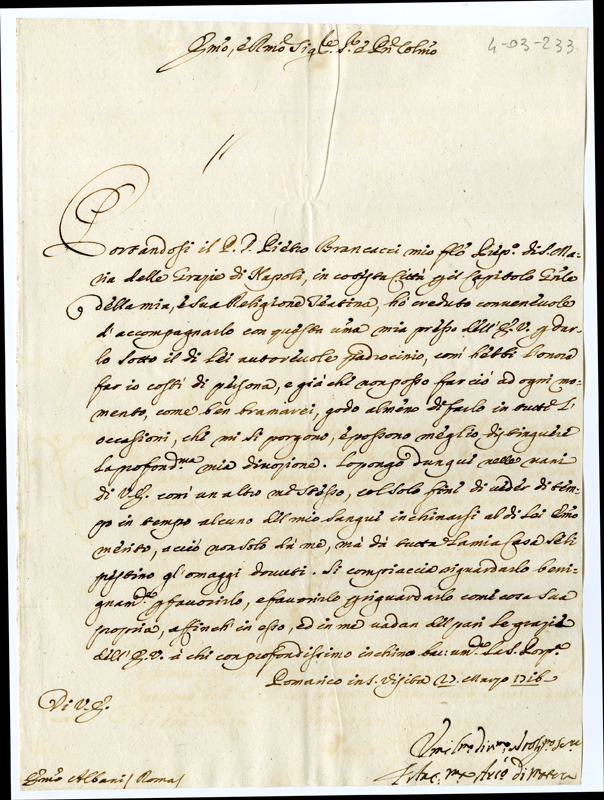 Em̃o, è Rmõ Sig.re S.re e Pñ Colmõ
4-03-233
Portandosi il P. D. Pietro Brancacci mio fllõ Prep.o di S. Ma-
ria delle Grazie di Napoli, in cotesta Città pel Capitolo Gñle
della mia, e sua Religione Teatina, hò creduto convenevole
d'accompagnarlo con questa una mia presso dell'E.V. p dar-
lo sotto il di Lei autorevole padrocinio, com'hebbi l'onore
far io costì di persona, e già che non posso far ciò ad ogni mo-
mento, come ben bramarei, godo almeno di farlo in tutte l'
occasioni, che mi si porgono, e possono meglio distinguere
la profond.ma mia divozione. Lo pongo dunque nelle mani
di V.E. com'un altro me stesso, col solo fine di veder di tem-
po in tempo alcuno del mio sangue inchinarsi al di Lei Em̃o
merito, acciò non solo dà me, mà dà tutta la mia Casa seli
prestino gl'omaggi dovuti. Si compiaccia riguardarlo beni-
gnam.te p favorirlo, e favorirlo p riguardarlo come cosa sua
propria, affinche in esso, ed in me vadan del pari le grazie
dell'E.V. à chi con profondissimo inchino bac: um.te la S. Porp.a
Pomarico in S. Visita 27. Marzo 1716
Di V.E.
Em̃o Albani / Roma /
Umil.mo div.mo
Arciv.o di Matera